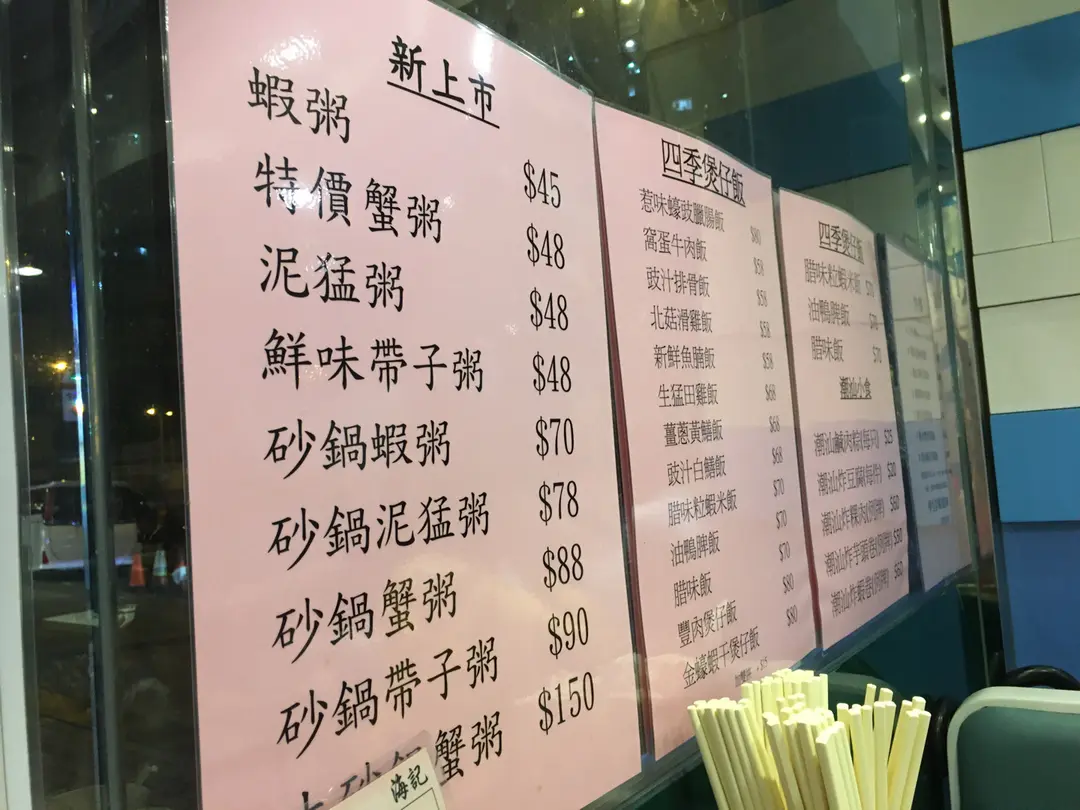 新上市
蝦粥 $45
特價蟹粥 $48
泥猛粥 $48
鮮味帶子粥 $48
砂鍋蝦粥 $70
砂鍋泥猛粥 $78
砂鍋蟹粥 $88
砂鍋帶子粥 $90
大砂鍋蟹粥 $150
海記
四季煲仔飯
惹味蠔豉臘腸飯 $80
窩蛋牛肉飯 $58
豉汁排骨飯 $58
北菇滑雞飯 $58
新鮮魚腩飯 $58
生猛田雞飯 $68
薑蔥黃鱔飯 $68
豉汁白鱔飯 $68
腊味粒蝦米飯 $70
油鴨脾飯 $70
腊味飯 $70
豐肉煲仔飯 $80
金蠔蝦干煲仔飯 $80
四季煲仔飯
腊味粒蝦米飯 $70
油鴨脾飯 $70
腊味飯 $70
潮汕小食
潮汕鹹肉粽(每只) $25
潮汕炸豆腐(每件) $20
潮汕炸粿肉(例牌) $60
潮汕炸芋頭卷(例牌) $50
潮汕炸蝦卷(例牌) $60